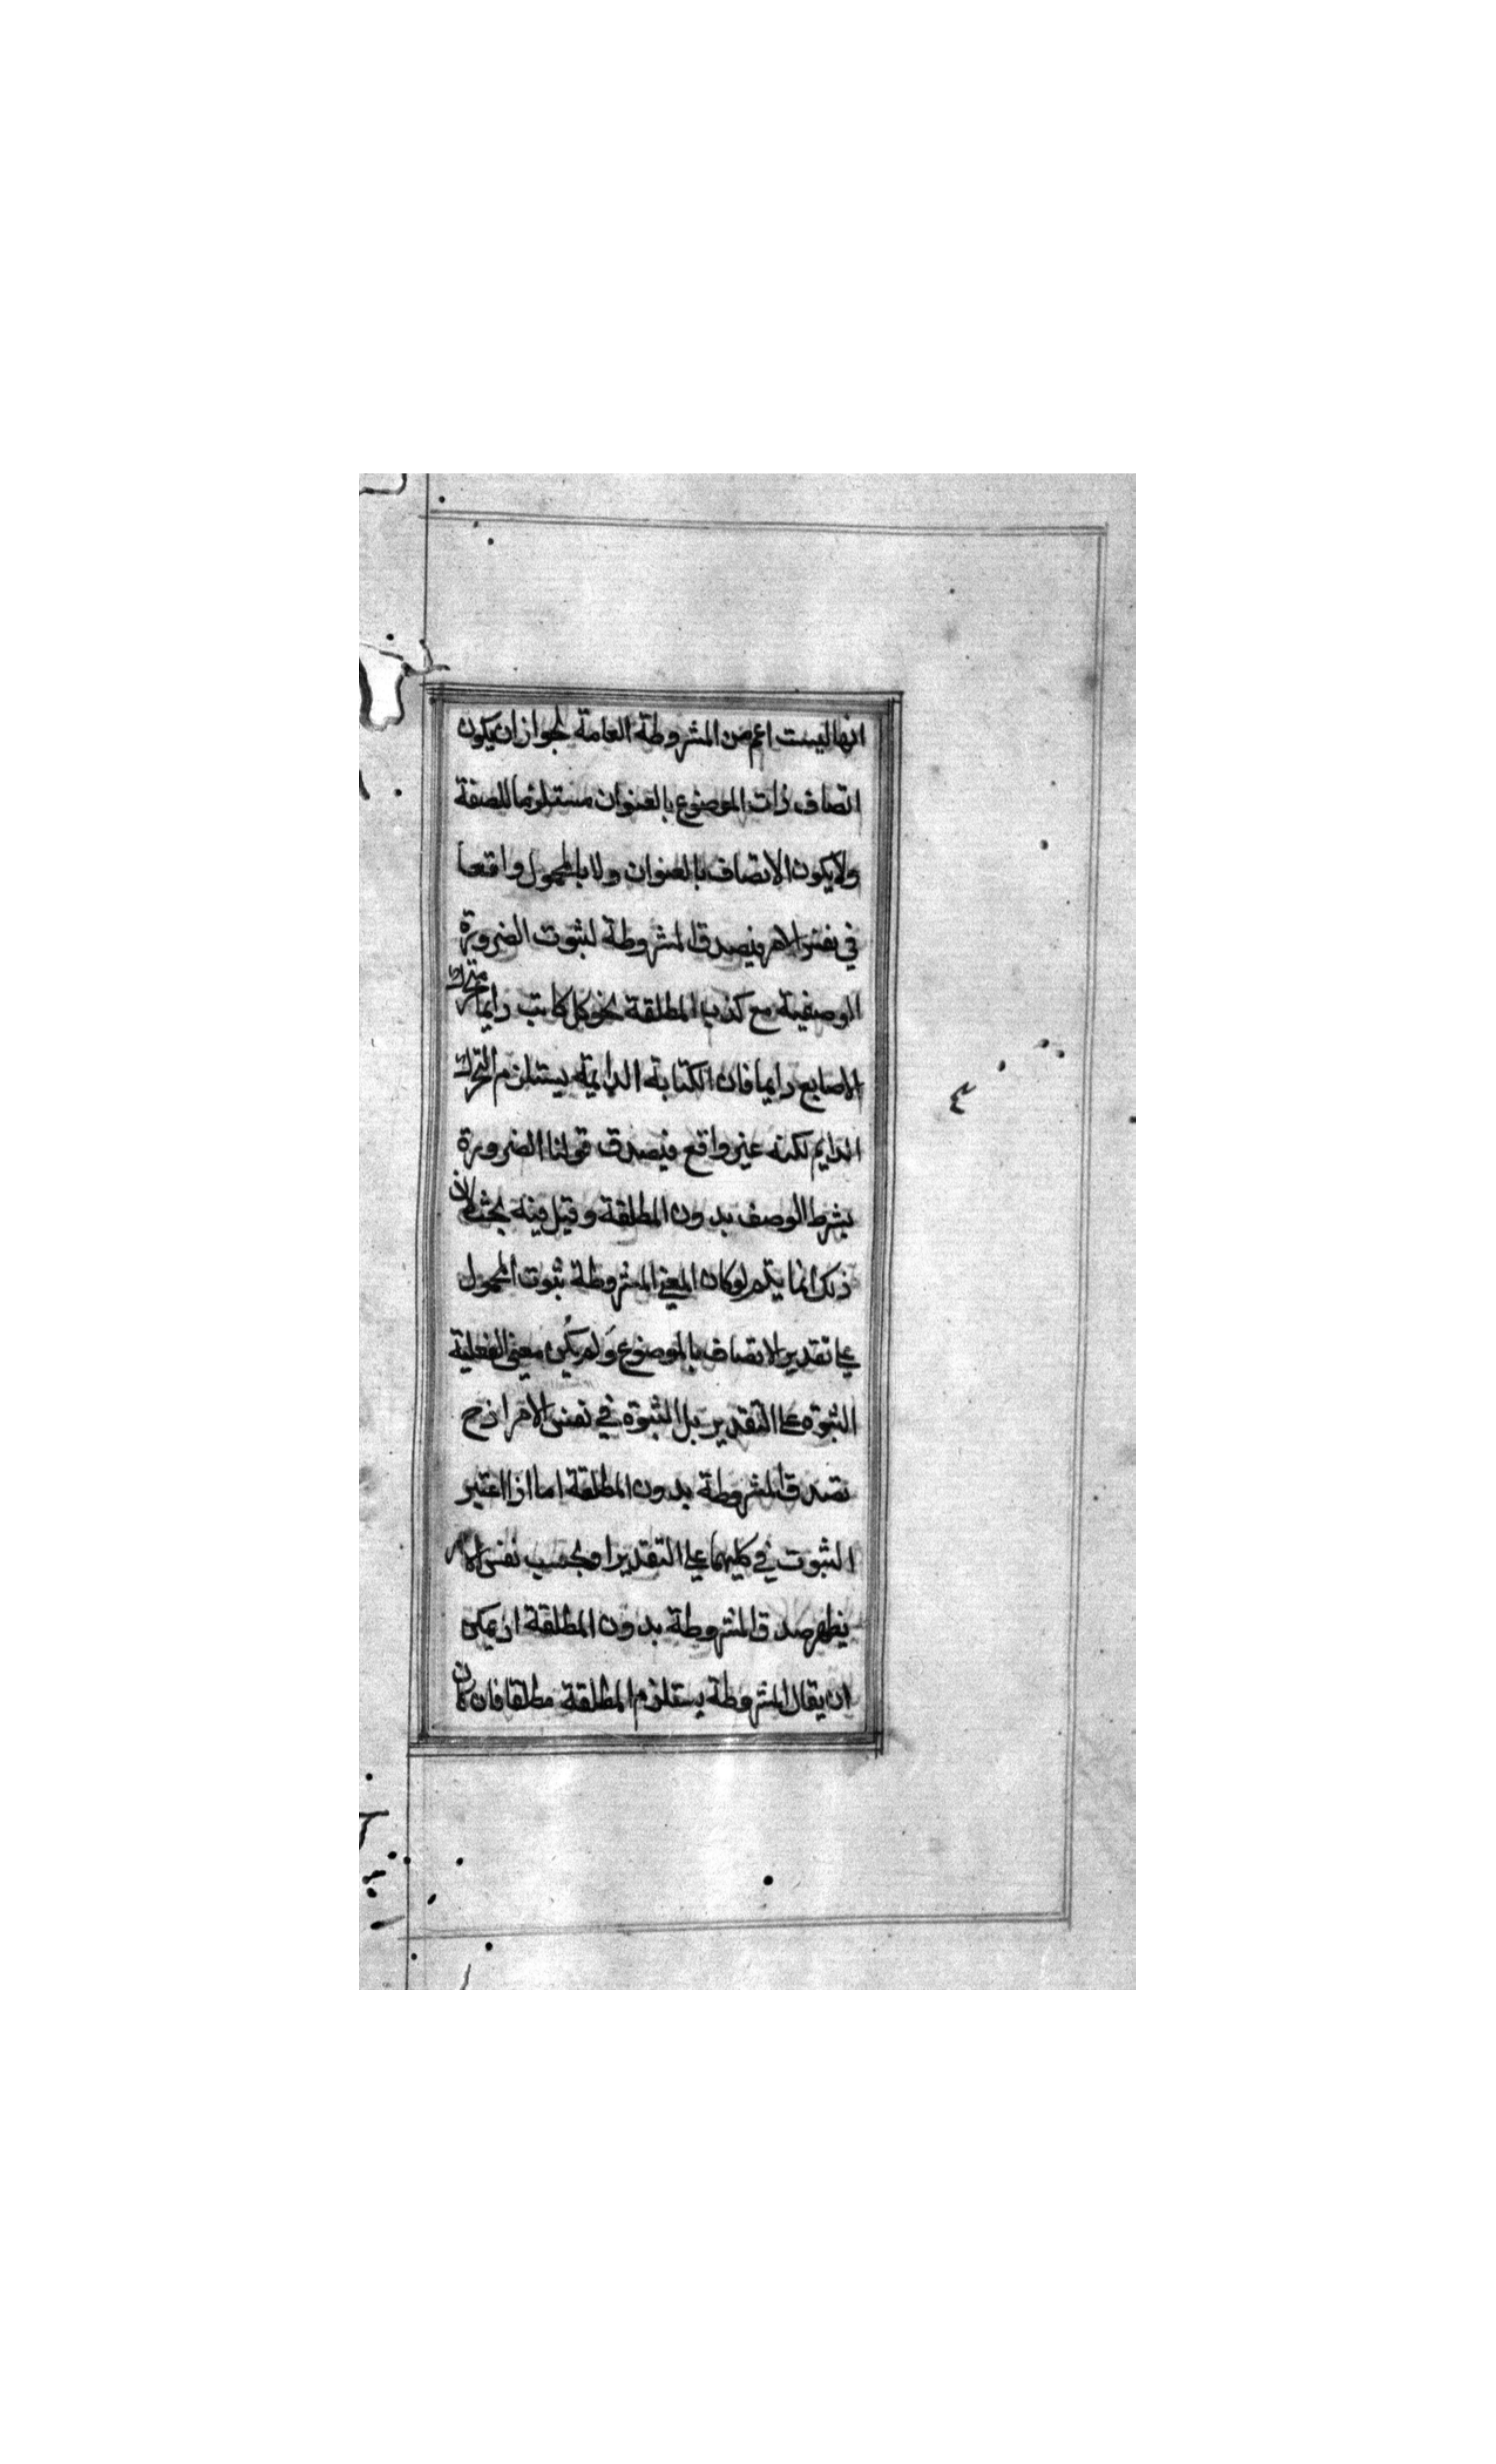 انها ليست اعم من المشروطة العامة لجواز ان يكون
اتصاف ذات الموضوع بالعنوان مستلزما للصفة
ولا يكون الاتصاف بالعنوان ولا بالمحمول واقعا
في نفس الامر فيصدق المشروطة لثبوت الضرورة
الوصفية مع كذب المطلقة نحو كل كاتب دايما متحرك
الاصابع دايما فان الكتابة الدايمة يستلزم التحرك
الدايم لكنه غير واقع فيصدق قولنا الضرورة
بشرط الوصف بدون المطلقة وقيل فيه بحث لان
ذلك انما يتم لو كان المعني المشروطة ثبوت المحمول
علي تقدير الاتصاف بالموضوع ولم يكن معني الفعلية
الثبوة علي التقدير بل الثبوة في نفس الامر اذ ح
تصدق المشروطة بدون المطلقة اما اذا اعتبر
الثبوت في كليهما علي التقدير او بحسب نفس الامر
يظهر صدق المشروطة بدون المطلقة اذ يمكن
ان يقال المشروطة يستلزم المطلقة مطلقا فان كان